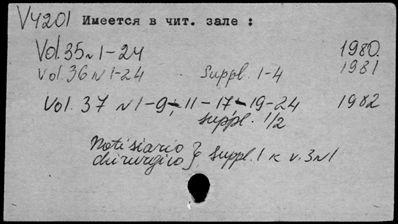 V4201 Имеется в чит. зале :
Vol. 35 N 1-24 1980
Vol. 36 N 1-24 Suppl. 1-4 1981
Vol. 37 N 1-9, 11-17-19-24 1982
suppl. 1/2
Notisiario
chirurgico } Suppl. 1 к v. 3 N 1